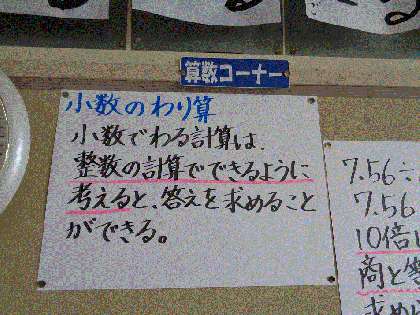 算数コーナー
小数のわり算
小数でわる計算は、
整数の計算でできるように
考えると、答えを求めること
ができる。
7.56÷
7.56
10倍
商と
求め